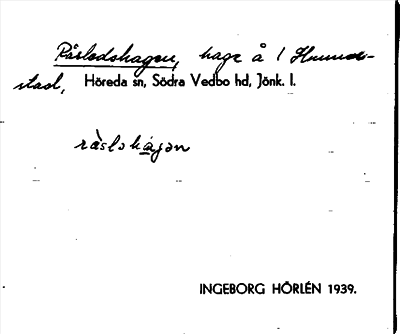 Råslodshagen, hage å 1 Hunner-
stad, Höreda sn, Södra Vedbo hd, Jönk. l.
ràslshágən
INGEBORG HÖRLÉN 1939.